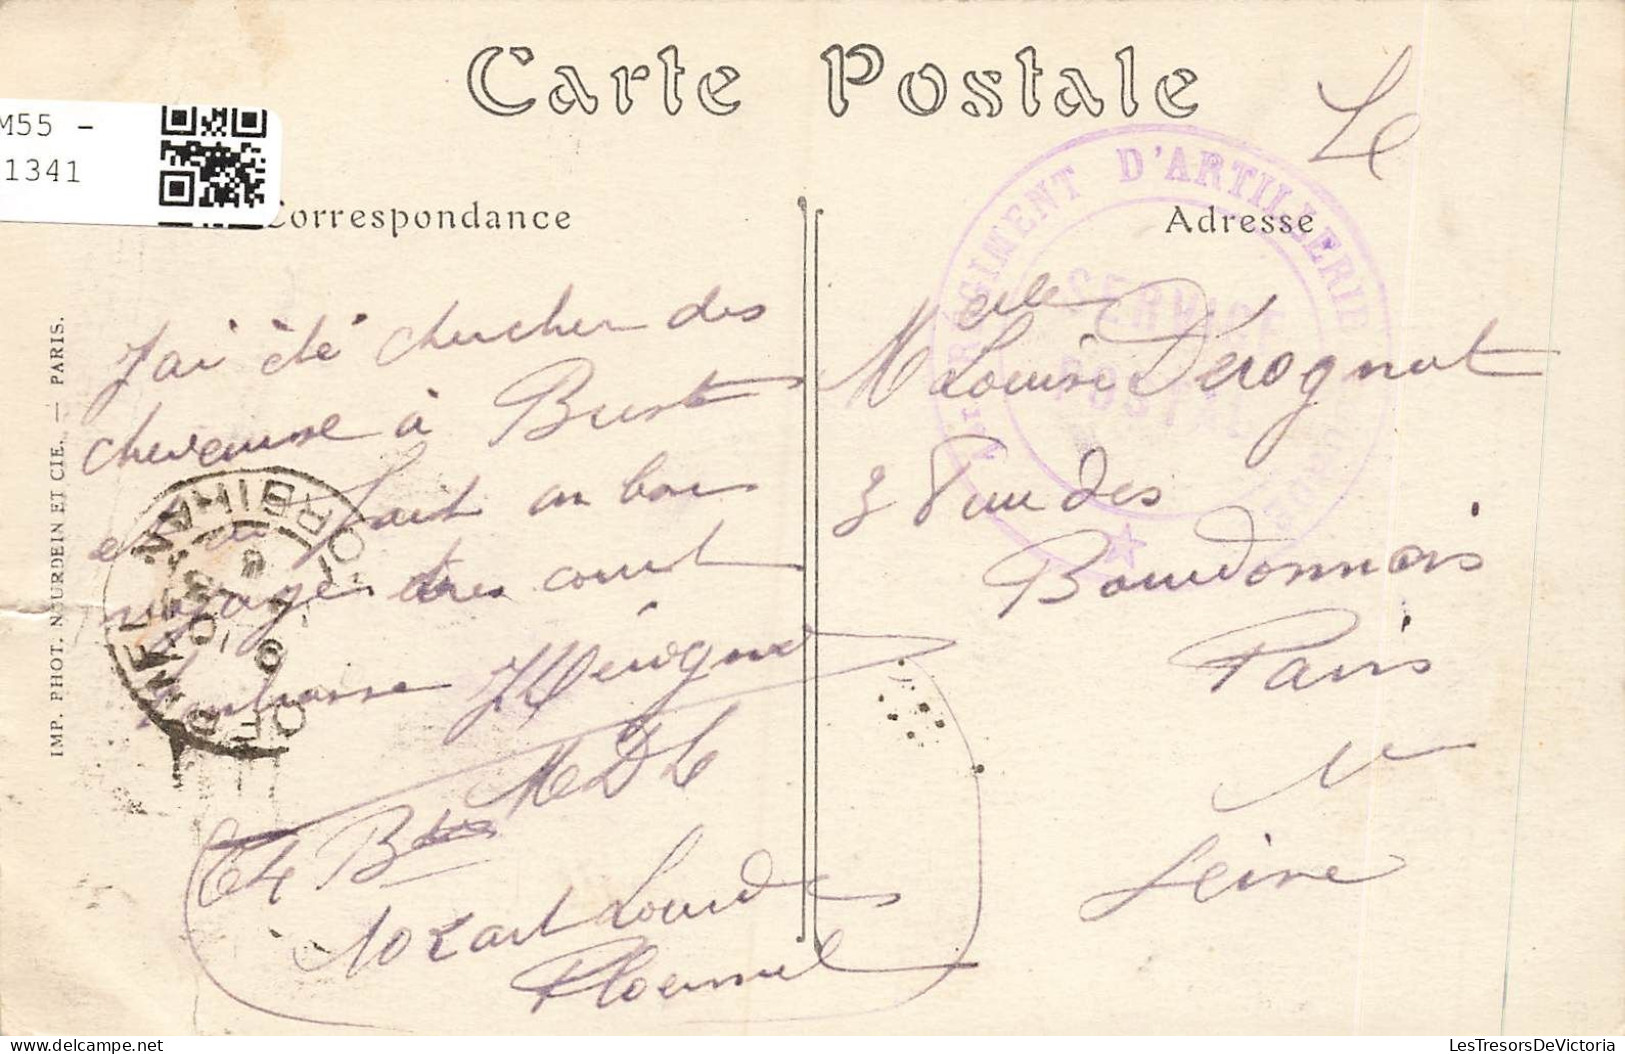 Carte Postale
M55 -
1341
Correspondance
Adresse
Le
J'ai été chercher des
chevausse à Brest
et ai fait un bon
voyage très court
Embrasse HDérognat
MDL
64 Bie
10e art Lourde
Ploermel
Melle Louise Dérognat
3 Rue des
Bourdonnais
Paris
Seine
REGIMENT D'ARTILLERIE LOURDE
SERVICE
POSTAL
PLOERMEL
MORBIHAN
IMP. PHOT. NEURDEIN ET CIE. — PARIS.
LesTresorsDeVictoria